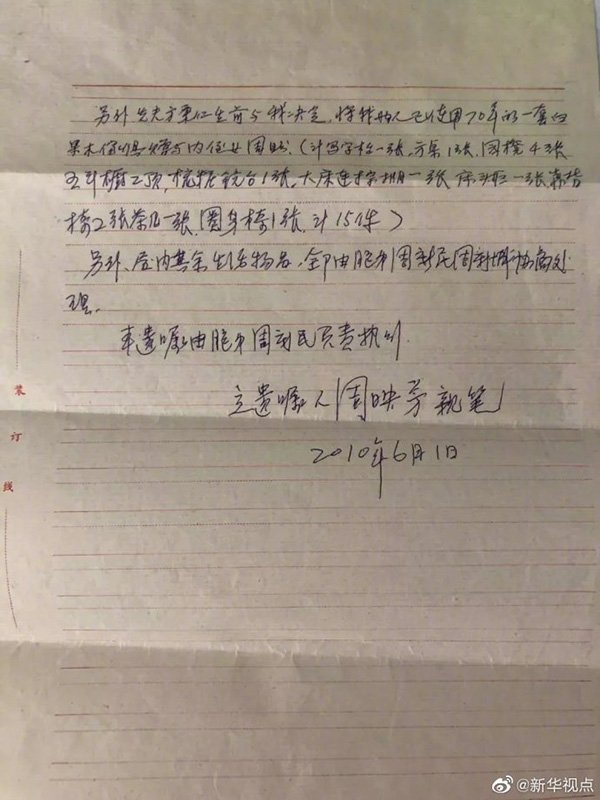 另外先夫方秉仁生前与我决定，将我俩人已使用70年的一套红
木家俱赠与内侄女周 （计写字枱一张，方桌1张，圆櫈4张
五斗橱2顶，梳妆镜台1张，大床连棕棚一张 床头柜一张 靠背
椅2张茶几一张，圈身椅1张，计15件）
另外，屋内其余生活物品，全部由胞弟周新民周新 协商处
理。
本遗嘱由胞弟周新民负责执行
立遗嘱人周映芳亲笔
2010年6月1日
装
订
线
@新华视点